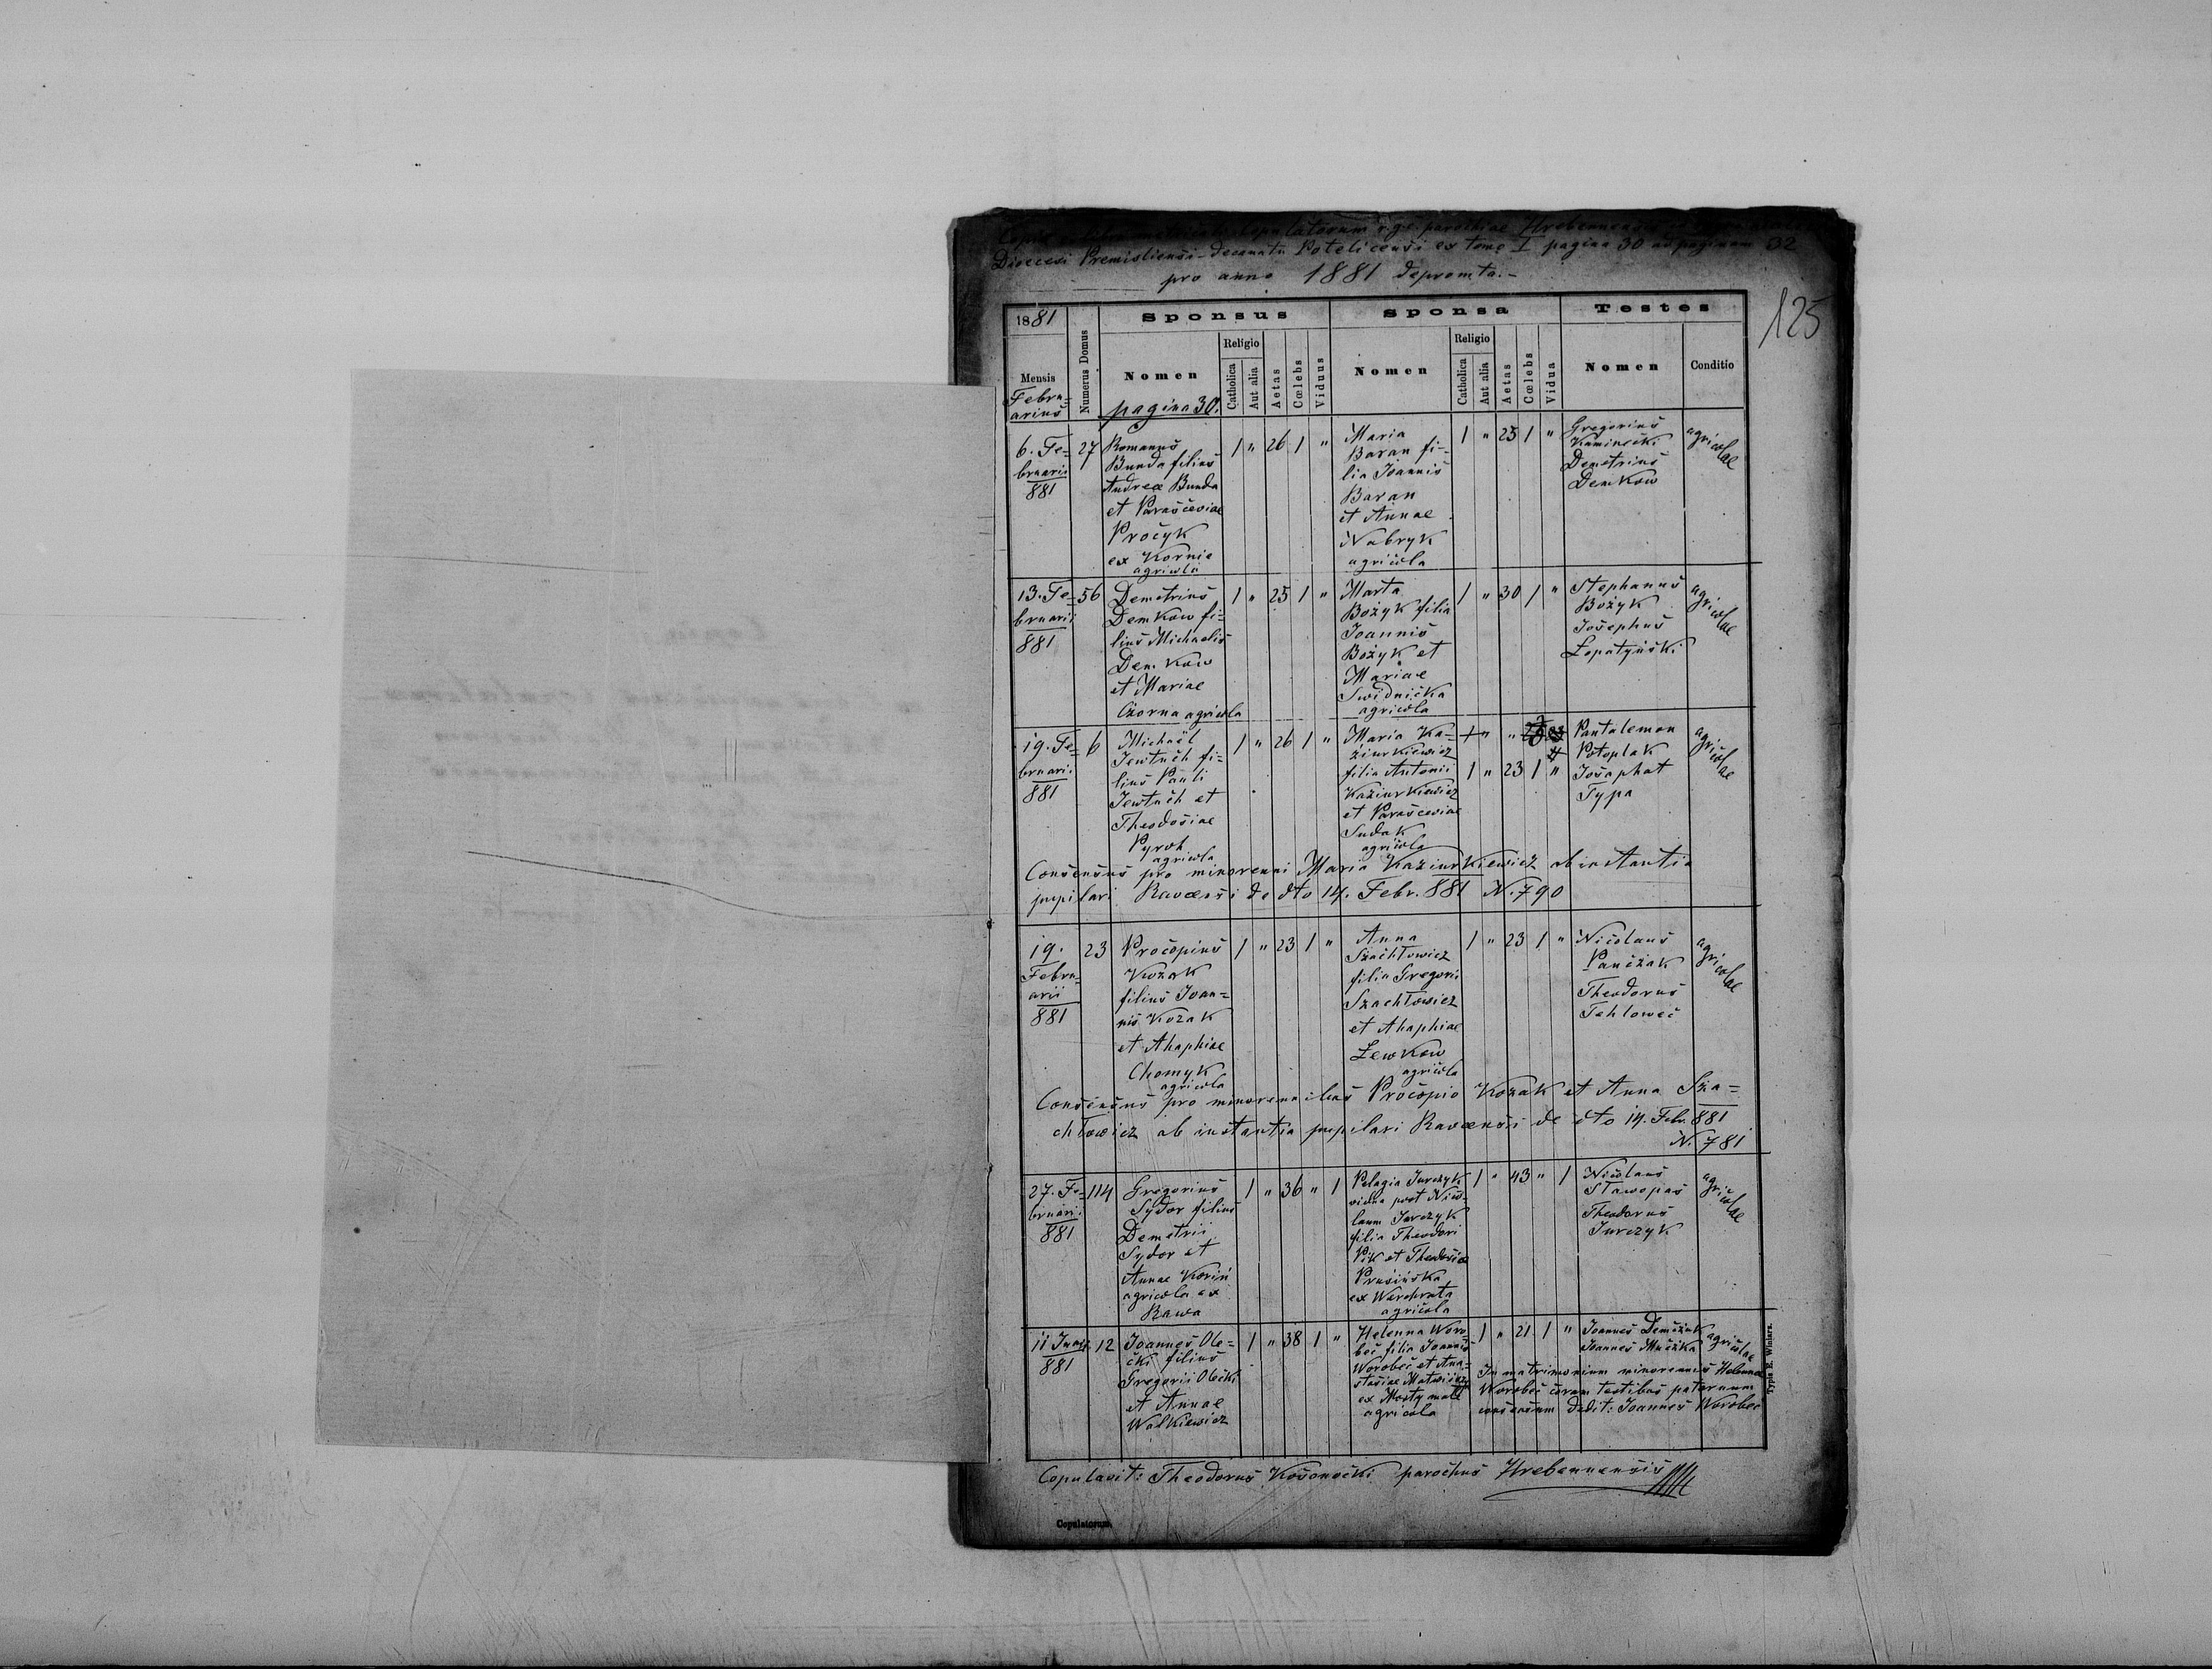 Copulatorum r. g. c. parochiae Hrebennensis
Dioecesi Premisliensi - decanatu Potelicensi ex tomo I pagina 30 ad paginam 32
pro anno 1881 depromta.-
125
1881
Numerus Domus
Sponsus
Sponsa
Testes
Mensis
Nomen
Religio
Catholica
Aut alia
Aetas
Cœlebs
Viduus
Nomen
Religio
Catholica
Aut alia
Aetas
Cœlebs
Vidua
Nomen
Conditio
Febru=
arius
pagina 30.
6. Fe=
bruarii
881
27
Romanus
Bunda filius
Andreae Bunda
et Parasceviae
Procyk
ex Kornie
agricola
1 " 26 1 "
Maria
Baran fi=
lia Joannis
Baran
et Annae
Nabryk
agricola
1 " 25 1 "
Gregorius
Kaminecki
Demetrius
Demkow
agricolae
13. Fe=
bruarii
881
56
Demetrius
Demkow fi=
lius Michaelis
Demkow
et Mariae
Czorna agricola
1 " 25 1 "
Marta
Bożyk filia
Joannis
Bożyk et
Mariae
Swidnicka
agricola
1 " 30 1 "
Stephanus
Bożyk
Josephus
Łopatyński
agricolae
19. Fe=
bruarii
881
6
Michaël
Jewtuch fi=
lius Pauli
Jewtuch et
Theodosiae
Pyroh
agricola
1 " 26 1 "
Maria Ka=
ziurkiewicz
filia Antonii
Kaziurkiewicz
et Parasceviae
Sudak
agricola
1 " 23 1 "
Pantalemon
Potoplak
Josaphat
Typa
agricolae
Consensus pro minorenni Maria Kaziurkiewicz ab instantia
pupilari Ravaensi de dto 14. Febr. 881 N. 790
19.
Febru=
arii
881
23
Procopius
Kozak
filius Joan=
nis Kozak
et Ahaphiae
Chomyk
agricola
1 " 23 1 "
Anna
Szachłowicz
filia Gregorii
Szachłowicz
et Ahaphiae
Lewkow
agricola
1 " 23 1 "
Nicolaus
Panczak
Theodorus
Tehlowec
agricolae
Consensus pro minorennibus Procopio Kozak et Anna Sza=
chłowicz ab instantia pupilari Ravaensi de dto 14. Febr. 881
N. 781
27. Fe=
bruarii
881
114
Gregorius
Sydor filius
Demetrii
Sydor et
Annae Koriń
agricola ex
Rawa
1 " 36 " 1
Pelagia Jurczyk
vidua post Nico=
laum Jurczyk
filia Theodori
Pik et Theodosiae
Prusińska
ex Werchrata
agricola
1 " 43 " 1
Nicolaus
Stawopas
Theodorus
Jurczyk
agricolae
11 Junii
881
12
Joannes Ole=
cki filius
Gregorii Olecki
et Annae
Walkiewicz
1 " 38 1 "
Helenna Woro=
bec filia Joannis
Worobec et Ana=
stasiae Matwiicz
ex Mosty małe
agricola
1 " 21 1 "
Joannes Demczuk
Joannes Muczka
agricolae
In matrimonium minorennis Helennae
Worobec coram testibus paternum
consensum dedit: Joannes Worobec
Typis E. Winiarz.
Copulavit: Theodorus Kosonocki parochus Hrebennensis
Copulatorum